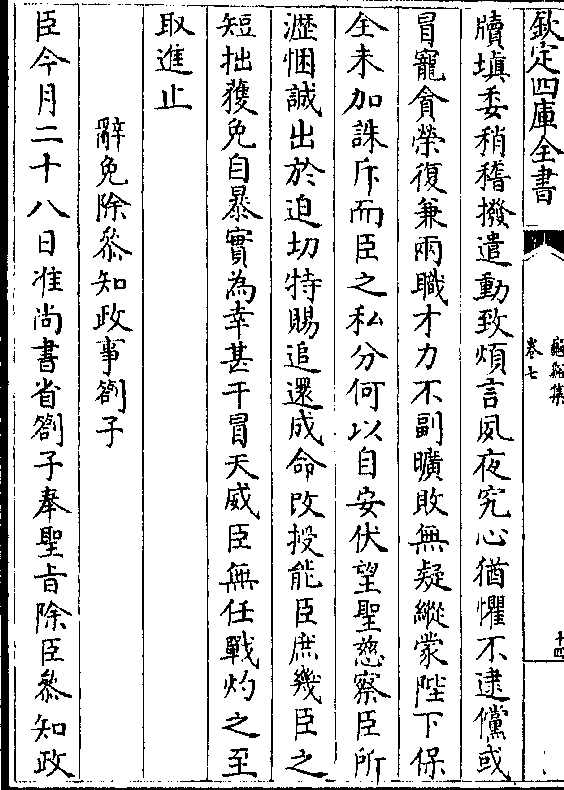 欽定四庫全書
龜谿集
卷七
十四
牘塡委稍稽撥遣動致煩言夙夜究心猶懼不逮儻或
冐寵貪榮復兼兩職才力不副曠敗無疑縱蒙陛下保
全未加誅斥而臣之私分何以自安伏望聖慈察臣所
瀝悃誠出於迫切特賜追還成命改授能臣庶幾臣之
短拙獲免自暴實為幸甚干冒天威臣無任戰灼之至
取進止
辭免除叅知政事劄子
臣今月二十八日准尚書省劄子奉聖旨除臣叅知政